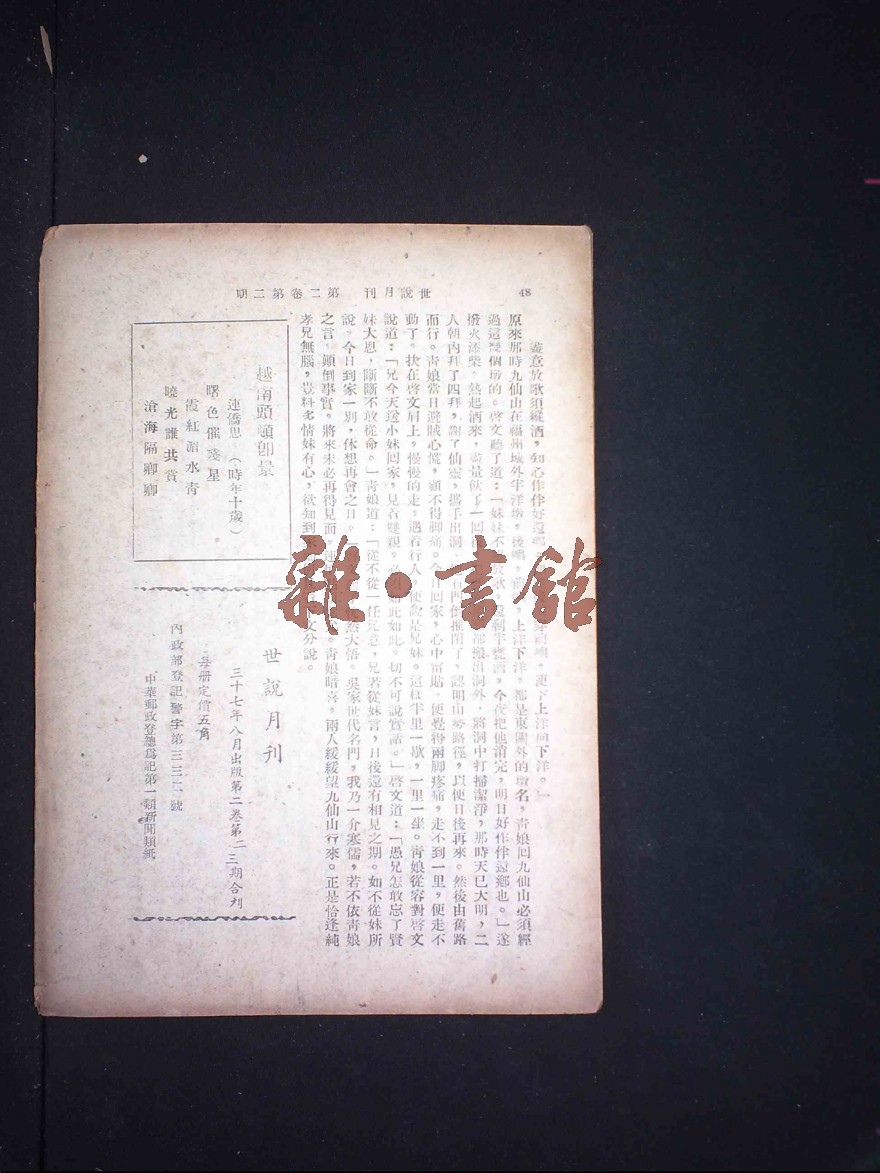 48
世說月刊 第二卷第二期
盡意放歌須縱酒，知心作伴好還鄉
，連下上洋向下洋。」
原來那時九仙山在福州城外半洋墩，後嶼
上洋下洋，都是東關外的墩名，靑娘囘九仙山必須經
過這幾個墩的。啓文聽了道：「妹妹不
剩半甕酒，今夜把他消完，明日好作伴還鄉也。」遂
撥火添柴，熱起酒來，盡量飲了一回
都搬出洞外，將洞中打掃潔淨，那時天已大明，二
人朝內拜了四拜，謝了仙靈，攜手出洞
認明山旁路徑，以便日後再來。然後由舊路
而行。靑娘當日避賊心慌，顧不得脚痛。今日囘家，心中甯貼，便覺得兩脚疼痛，走不到一里，便走不
動了。扶在啓文肩上，慢慢的走。遇着行人，便說是兄妹。這樣半里一歇，一里一坐。靑娘從容對啓文
說道：「兄今天送小妹囘家，見着雙親，必須如此如此。切不可說實話。」啓文道：「愚兄怎敢忘了賢
妹大恩，斷斷不敢從命。」靑娘道：「從不從一任兄意，兄若從妹言，日後還有相見之期。如不從妹所
說。今日到家一別，休想再會之日。
然大悟。吳家世代名門，我乃一介寒儒，若不依靑娘
之言。顚倒事實。將來未必再得見面。連
靑娘暗喜，兩人緩緩望九仙山行來。正是恰逢純
孝兄無腦，豈料多情妹有心，欲知到家
下文分說。
越南頭頓卽景
連僑思（時年十歲）
曙色催殘星
霞紅湄水靑
曉光誰共賞
滄海隔卿卿
世說月刊
三十七年八月出版第二卷第二三期合刊
每册定價五角
內政部登記警字第三三二號
中華郵政登總爲記第一類新聞類紙
雜·書館